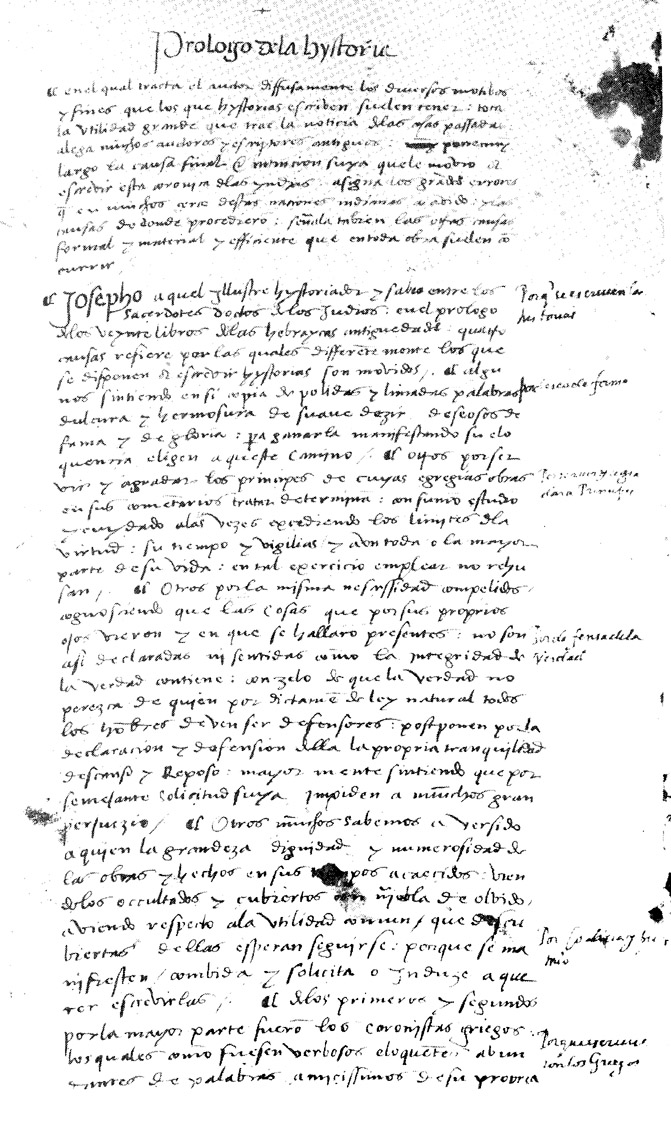 Prologo dela hystoria
en el qual tracta el auctor diffusamente los diversos motibos
y fines que los que hystorias escriben suelen tener : toca
la utilidad grande que trae la noticia dlas cosas passadas
alega muchos auctores y escriptores antiguos :
largo la causa final e intincion suya que le movio a
escrevir esta coronica dlas yndias : asigna los grãdes errores
q̃ en muchos cerca destas naciones indianas a avido : y las
causas de donde procediero : señala tãbien las otras causas
formal y material y efficiente que en toda obra suelen cõ
currir
Josepho aquel yllustre hystoriador y sabio entre los
sacerdotes doctos dlos Judios : en el prologo
dlos veynte libros dlas hebraycas antiguedades : quatro
causas refiere por las quales differẽtemente los que
se disponen a escrevir hystorias son movidos / . algu
nos sintiendo en si copia de polidas y limadas palabras
dulcura y hermosura de suave dezir deseosos de
fama y de gloria : pa ganarla manifestando su elo
quencia eligen aqueste camino / . otros por ser
vir y agradar los principes de cuyas egregias obras
en sus comẽtarios tratar determina : con sumo estudio
y cuydado alas vezes excediendo los limites dla
virtud : su tiempo y vigilias y aon toda o la mayor
parte de su vida : en tal exercicio emplear no rehu
san / . Otros por la misma nesçessidad compelidos
cognosciendo que las cosas que por sus proprios
ojos vieron y en que se hallarõ presentes : no son
asi declaradas ni sentidas como la integridad de
la verdad contiene : con zelo de que la verdad no
perezca de quien por dictamẽ de ley natural todos
los hõbres deven ser defensores : postponen por la
declaracion y defension dlla la propria tranquilidad
descanso y Reposo : mayor mente sintiendo que por
semejante solicitud suya impiden a muchos gran
perjuzio / Otros muchos sabemos aver sido
a quien la grandeza dignidad y numerosidad de
las obras y hechos en sus tiempos acaecidos : vien
dolos occultados y cubiertos con niebla de olvido
aviendo respecto ala utilidad comun / que descu
biertas dellas esperan seguirse : porque se ma
nifiesten / combida y solicita o Induze a que
rer escrevirlas / . dlos primeros y segundos
por la mayor parte fuerõ los coronistas griegos
los quales como fuesen verbosos eloquẽtes abun
dantes de palabras amicissimos de su propria
Porq̃ se escriven las
historias